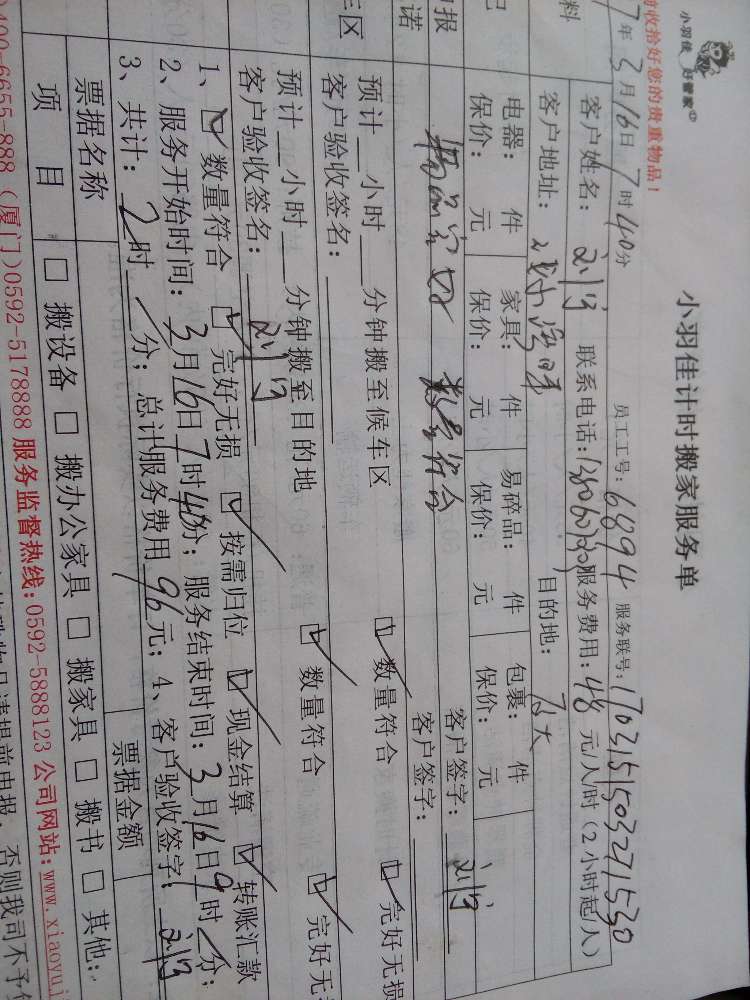 小羽佳 好管家
收拾好您的贵重物品！
小羽佳计时搬家服务单
7年3月16日7时40分 员工工号：6894 服务联号：1703151503271530
料 客户姓名： 联系电话： 服务费用：48元/人/时（2小时起/人）
客户地址： 目的地：
记 电器： 件 家具： 件 易碎品： 件 包裹： 件
保价： 元 保价： 元 保价： 元 保价： 元
申报 客户签字：
诺 数量符合 客户签字：
车区 预计__小时__分钟搬至候车区 数量符合 完好无损
客户验收签名：
预计__小时__分钟搬至目的地 数量符合 完好无
客户验收签名：
1、 数量符合 完好无损 按需归位 现金结算 转账汇款
2、服务开始时间：3月16日7时40分；服务结束时间：3月16日9时 分；
3、共计：2时 分；总计服务费用96元；4、客户验收签字：
票据名称 票据金额
项 目 □ 搬设备 □ 搬办公家具 □ 搬家具 □ 搬书 □ 其他:
400-6655-888（厦门）0592-5178888 服务监督热线：0592-5888123 公司网站：www.xiaoyuj
请提前申报，否则我司不予